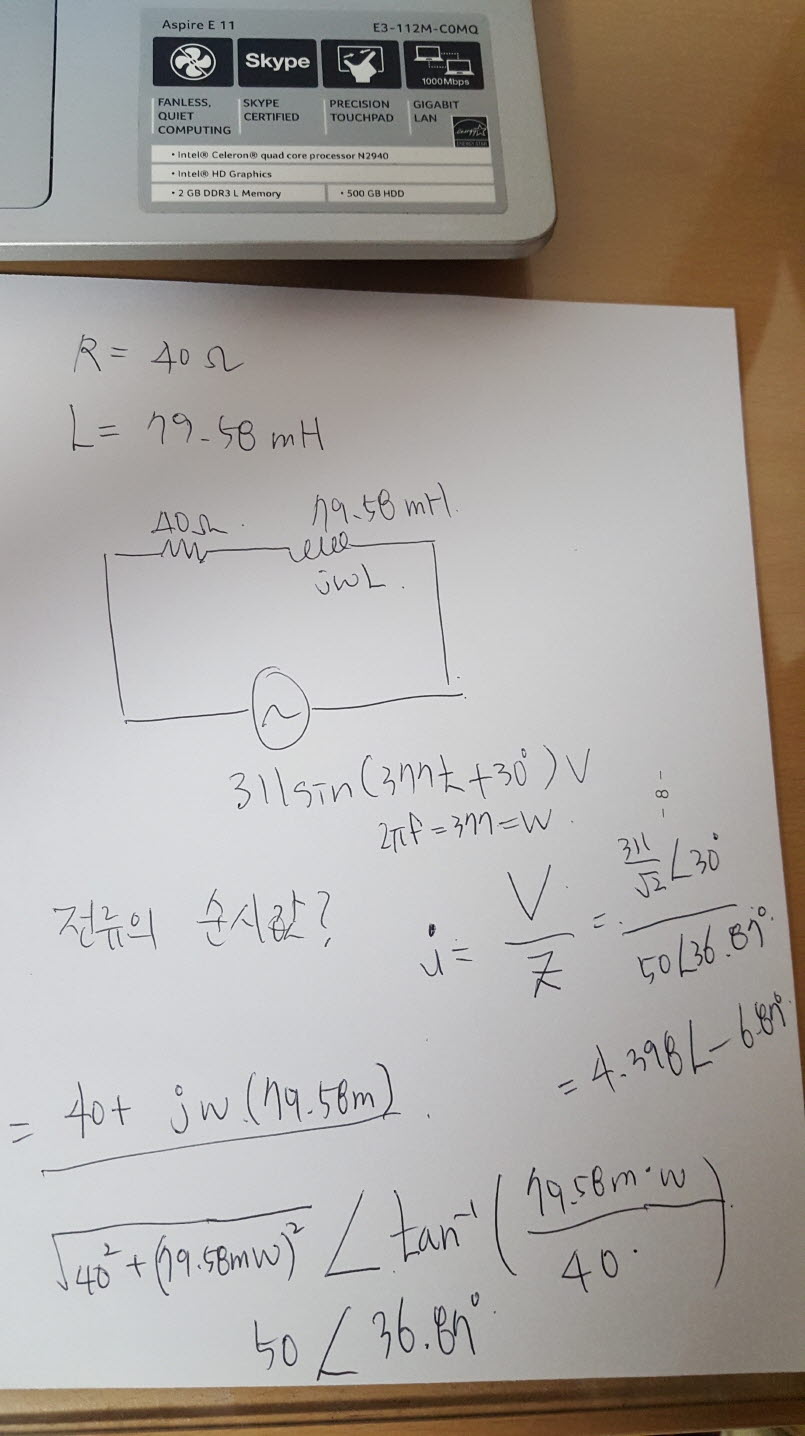 Aspire E 11
E3-112M-C0MQ
Skype
1000Mbps
FANLESS,
QUIET
COMPUTING
SKYPE
CERTIFIED
PRECISION
TOUCHPAD
GIGABIT
LAN
ENERGY STAR
• Intel® Celeron® quad core processor N2940
• Intel® HD Graphics
• 2 GB DDR3 L Memory
• 500 GB HDD
R = 40 Ω
L = 79.58 mH
40Ω
79.58 mH
jωL
~
311sin(377t+30°)V
2πf=377=W
전류의 순시값?
i = V/Z = (311/√2 ∠30°)/(50∠36.87°)
= 4.398∠-6.87°
= 40+ jw(79.58m)
√(40²+(79.58mW)²) ∠ tan⁻¹(79.58m·w/40)
50 ∠ 36.87°